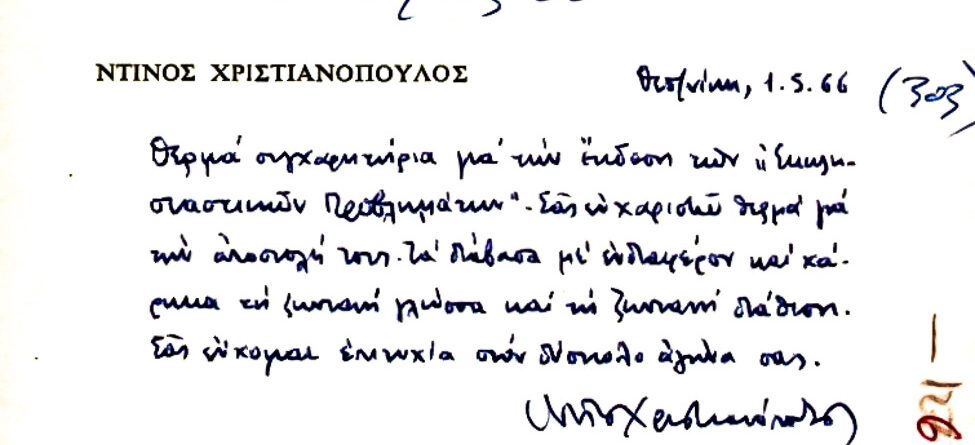 ΝΤΙΝΟΣ ΧΡΙΣΤΙΑΝΟΠΟΥΛΟΣ
Θεσ/νίκη, 1.5.66 (303)
Θερμά συγχαρητήρια γιά τήν ἔκδοση τῶν "Ἐκκλη-
σιαστικῶν Προβλημάτων". Σᾶς εὐχαριστῶ θερμά γιά
τήν ἀποστολή τους. Τά διάβασα μέ ἐνδιαφέρον καί χά-
ρηκα τή ζωντανή γλώσσα καί τή ζωντανή διάθεση.
Σᾶς εὔχομαι ἐπιτυχία στόν δύσκολο ἀγώνα σας.
Ντίνος Χριστιανόπουλος